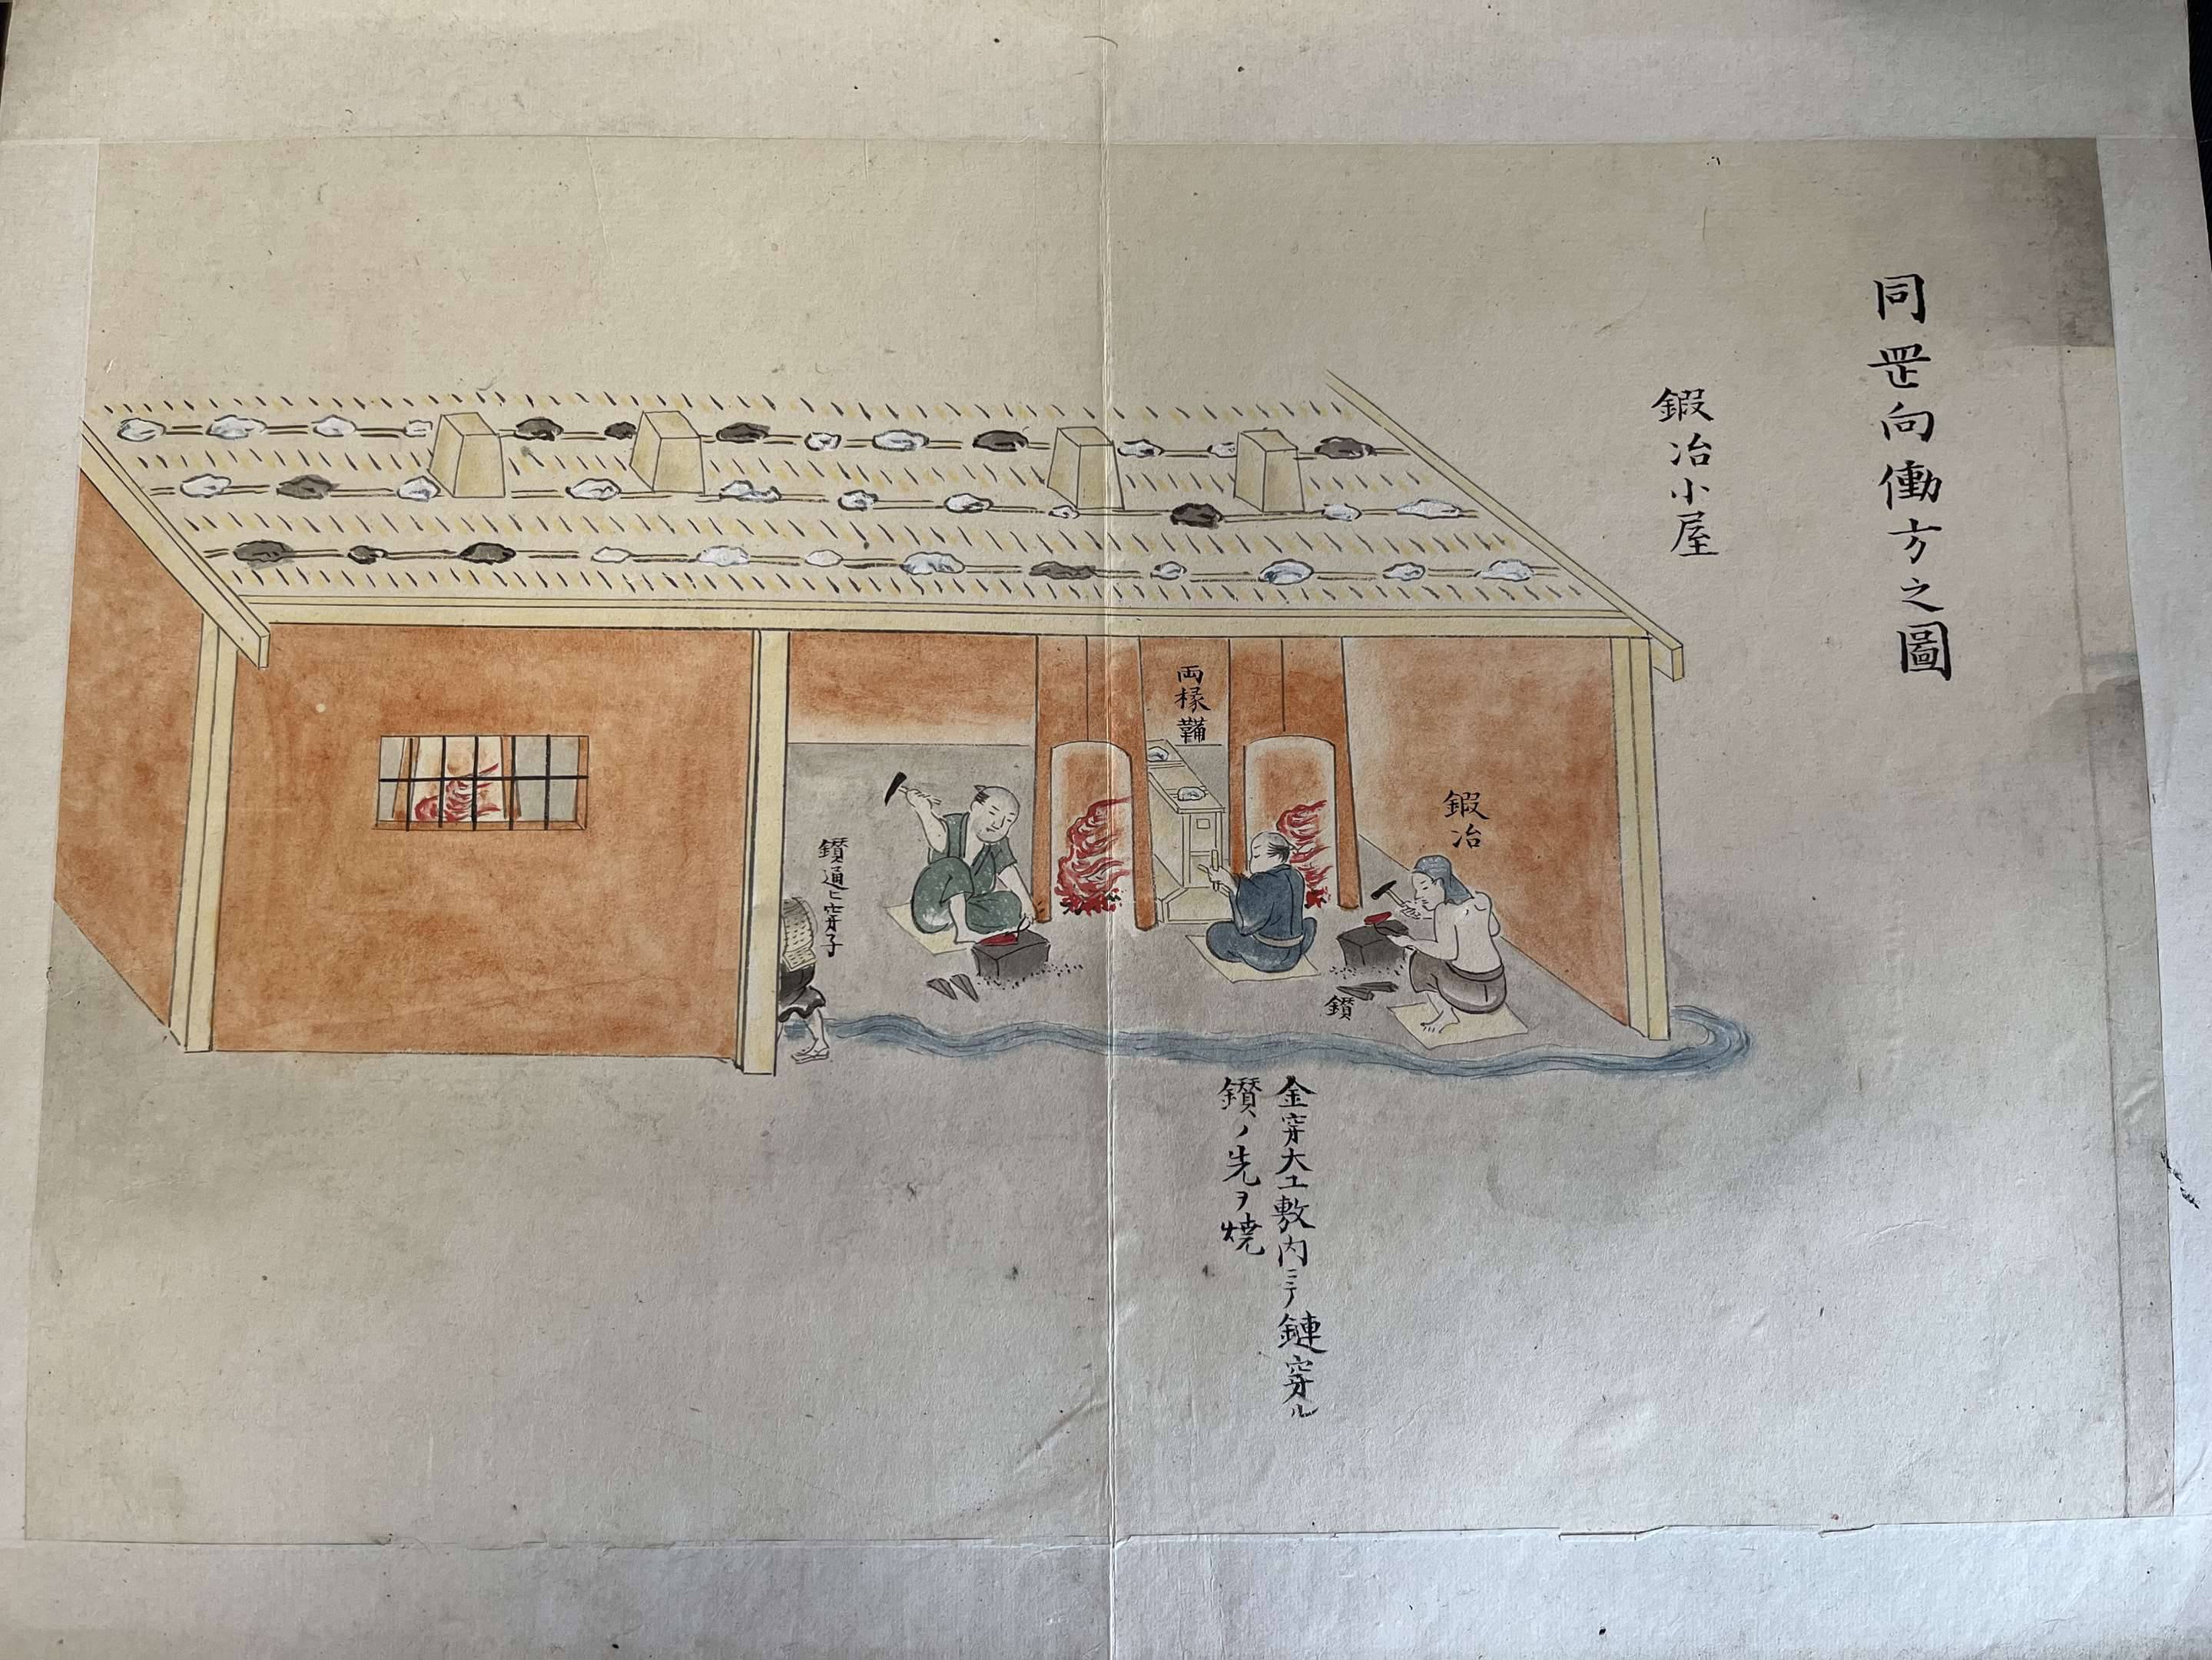 同罡向働方之圖
鍜冶小屋
鍜冶
鑚
両椽鞴
鑚通ヒ穿子
金穿大工敷内ニテ鏈穿ル
鑚ノ先ヲ焼